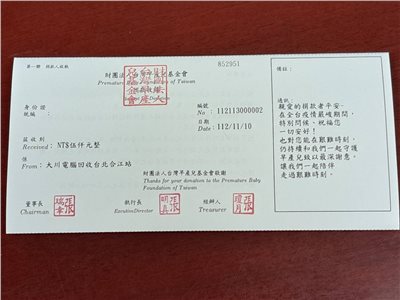 第一聯 捐款人收執
852951
財團法人台灣早產兒基金會
Premature Baby Foundation of Taiwan
捐款收據
身份證
統編:
編號
No: 112113000002
日期
Date: 112/11/10
茲收到
Received: NT$伍仟元整
係
From: 大川電腦回收台北合江站
財團法人台灣早產兒基金會敬謝
Thanks for your donation to the Premature Baby
Foundation of Taiwan
董事長
Chairman
執行長
ExecutiveDirector
經辦人
Treasurer
備註:
通訊:
親愛的捐款者平安,
在全台疫情最峻期間,
特別問候、祝福您
一切安好!
也對您能在艱難時刻,
仍持續和我們一起守護
早產兒致以最深謝意,
讓我們一起陪伴
走過艱難時刻.